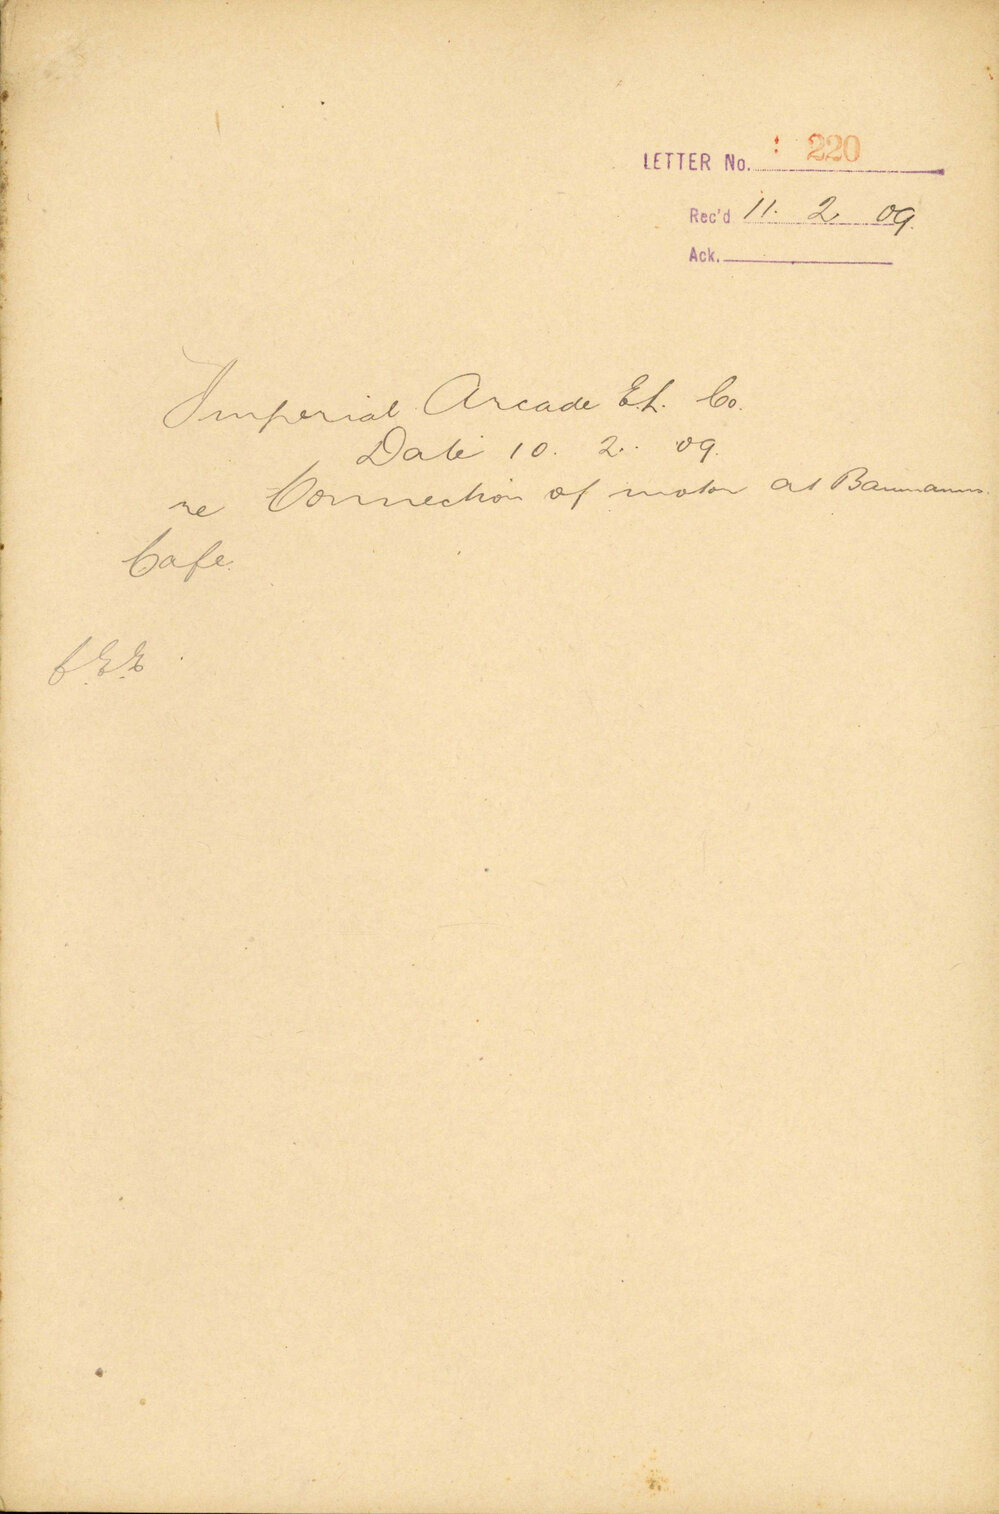 LETTER No. 220
Rec'd 11. 2 09.
Ack.
Imperial Arcade E.L. Co.
Date 10. 2. 09.
re Connection of motor at Baumanns
Cafe.
C.E.E.